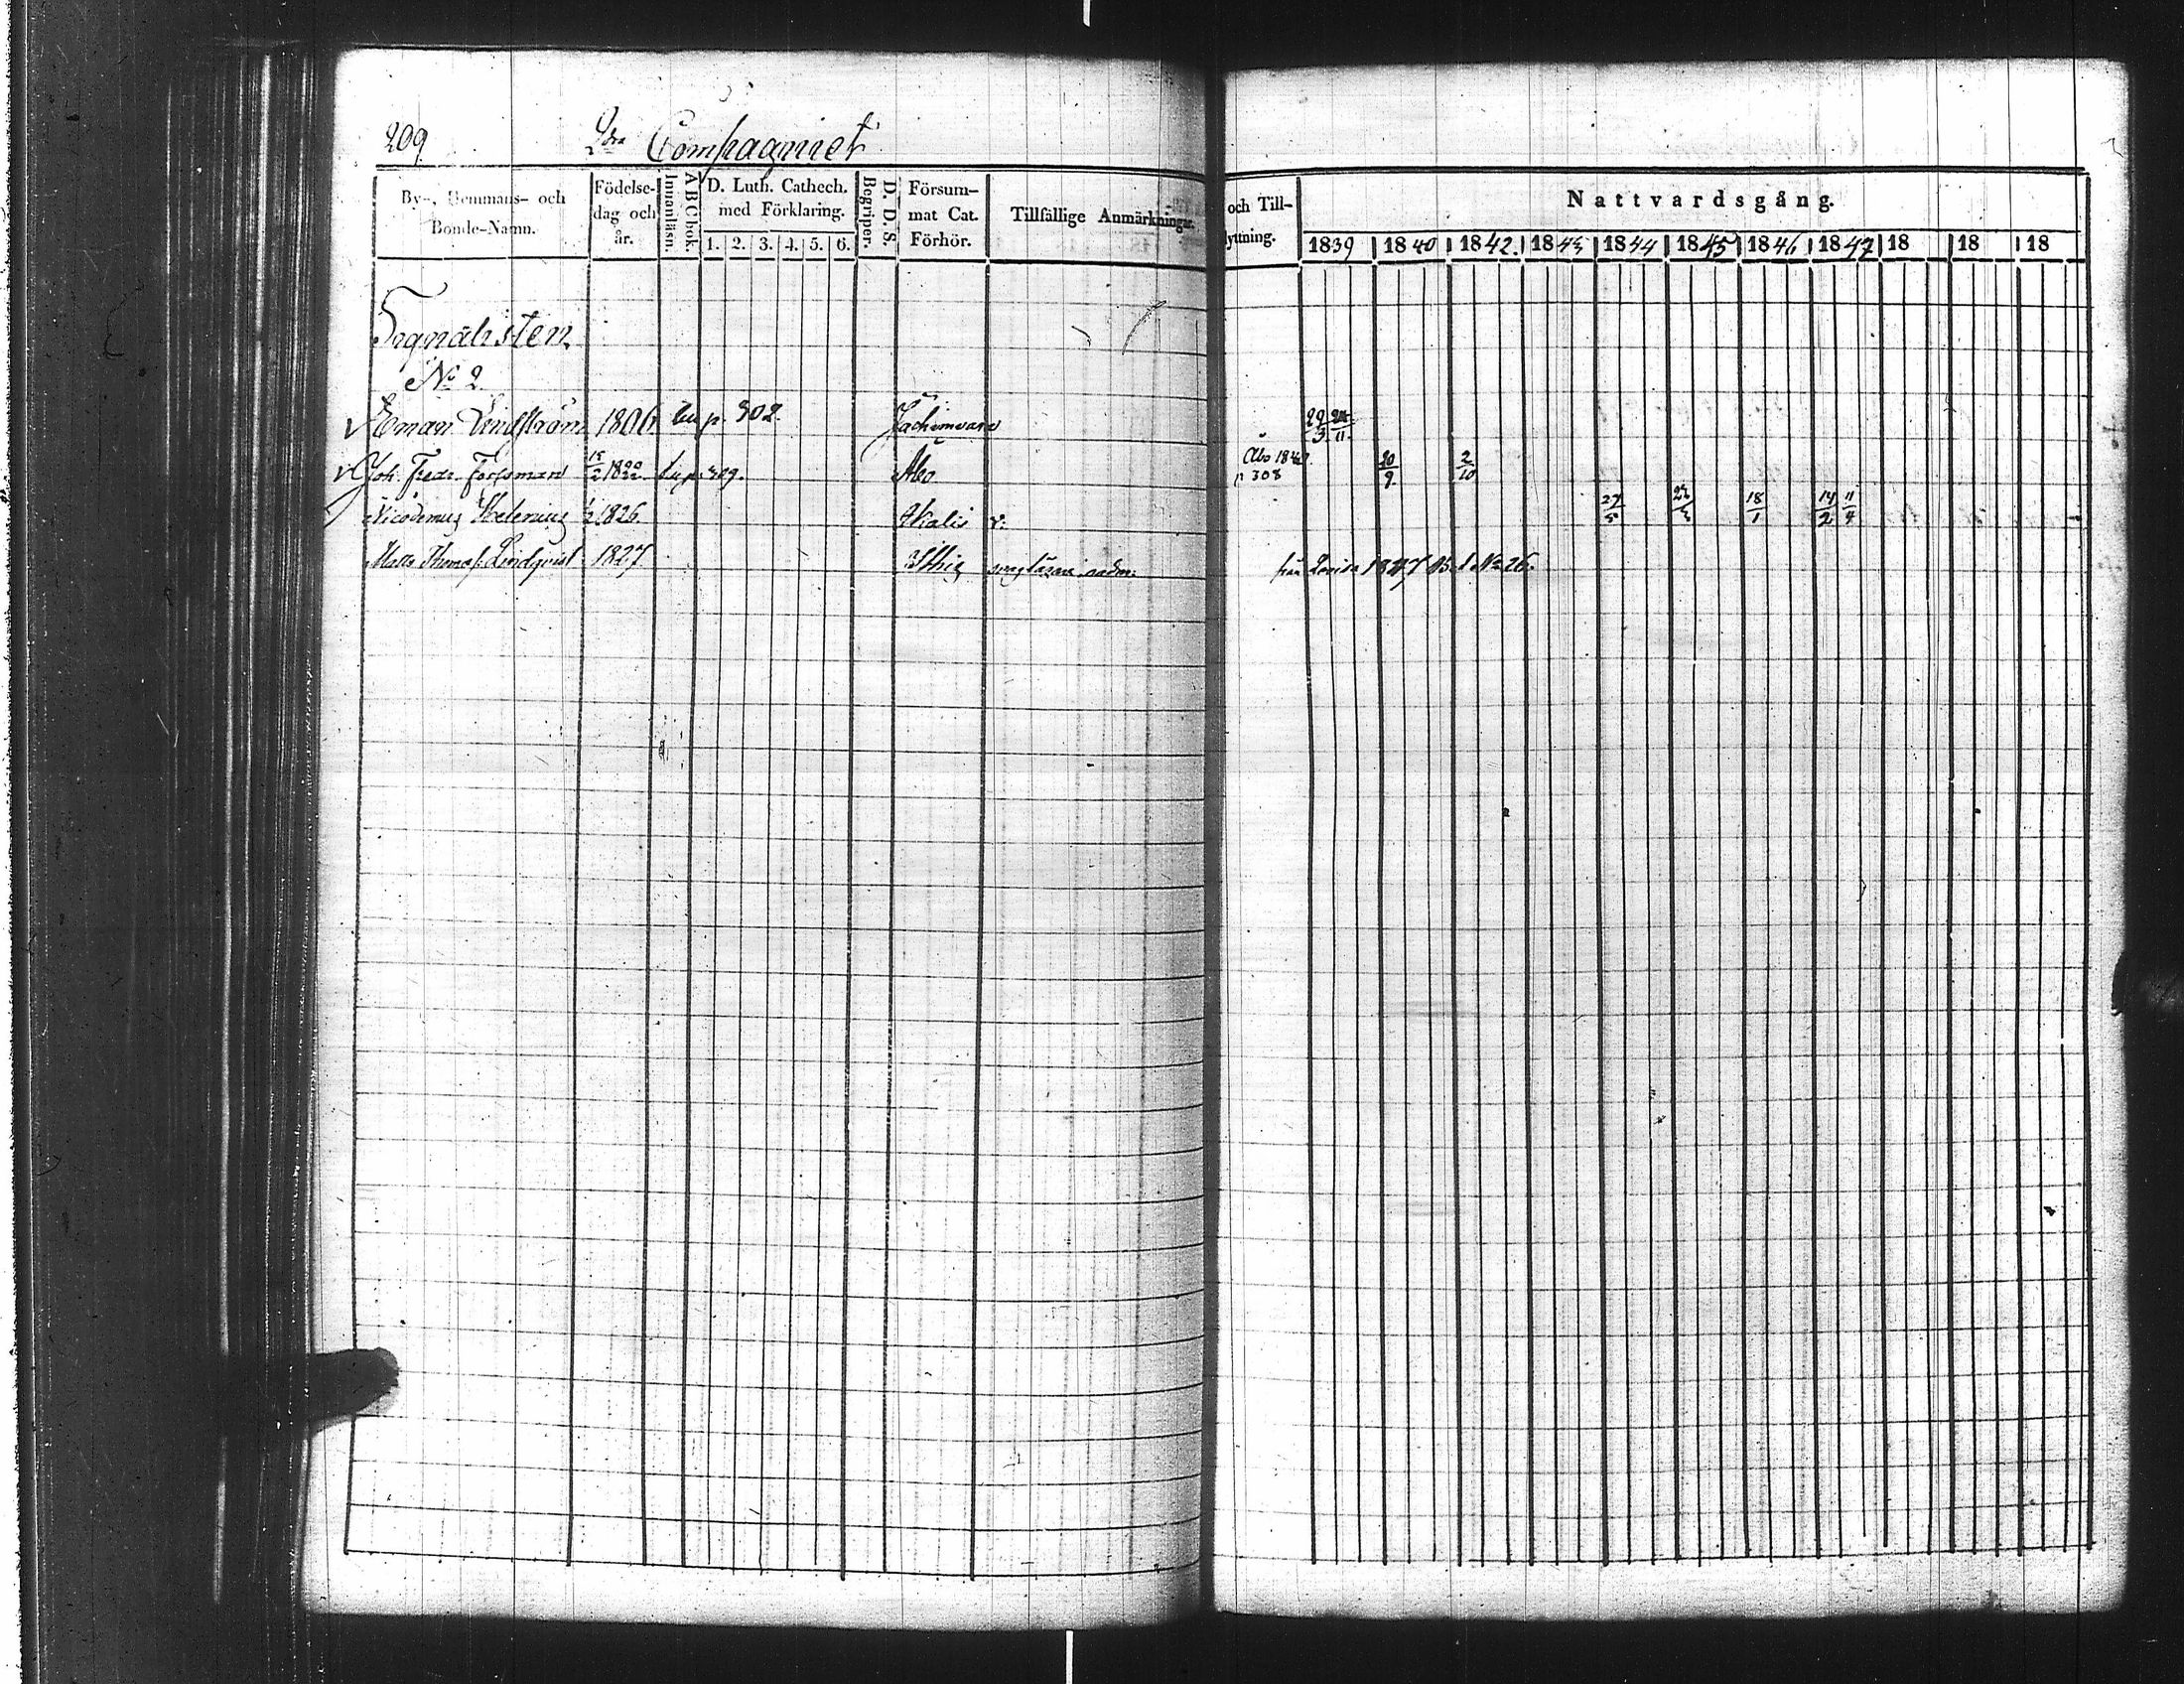 209 2dra Compagniet
By-, Hemmans- och Bonde-Namn.
Födelse-dag och år.
Innanläsn.
ABC bok.
D. Luth. Cathech. med Förklaring.
1. 2. 3. 4. 5. 6.
Begriper.
D. D. S.
Försum-mat Cat. Förhör.
Tillfällige Anmärkningar.
och Till-
lyttning.
Nattvardsgång.
1839 1840 1842. 1843 1844 1845 1846 1847 18 18 18
Signalisten
No 2
Eman Lindström 1806 Lup. 302. 29/3 11.
Joh. Fredr. Forssman 15/2 1822 Lup. 309. Åbo Åbo 1842. p 308 20/9 2/10
Nicodemus 1826. 27/5 18/1 14/2 11/4
Matts Thomas Lindqvist 1827 från Lovisa 1847 No 26.